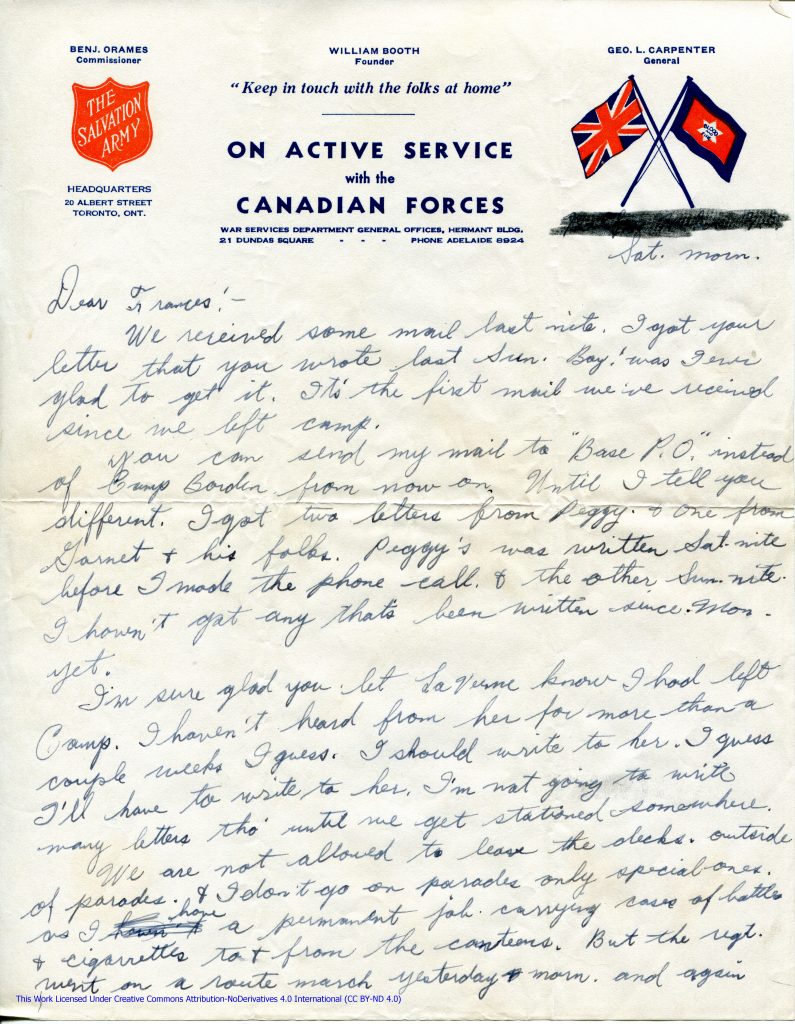 BENJ. ORAMES
Commissioner
WILLIAM BOOTH
Founder
GEO. L. CARPENTER
General
"Keep in touch with the folks at home"
THE
SALVATION
ARMY
ON ACTIVE SERVICE
with the
CANADIAN FORCES
HEADQUARTERS
20 ALBERT STREET
TORONTO, ONT.
WAR SERVICES DEPARTMENT GENERAL OFFICES, HERMANT BLDG.
21 DUNDAS SQUARE - - - PHONE ADELAIDE 8924
Sat. morn.
Dear Frances!-
We received some mail last nite. I got your
letter that you wrote last Sun. Boy! was I ever
glad to get it. It's the first mail we've received
since we left camp.
You can send my mail to "Base P.O." instead
of Camp Borden from now on. Until I tell you
different. I got two letters from Peggy. & one from
Garnet & his folks. Peggy's was written Sat. nite
before I made the phone call. & the other Sun. nite.
I haven't got any that's been written since Mon.
yet.
I'm sure glad you let LaVerne know I had left
Camp. I haven't heard from her for more than a
couple weeks I guess. I should write to her. I guess
I'll have to write to her. I'm not going to write
many letters tho' until we get stationed somewhere.
We are not allowed to leave the decks. outside
of parades. & I don't go on parades only special ones.
as I have a permanent job carrying cases of bottles
& cigarrettes to & from the canteens. But the regt.
went on a route march yesterday morn. and again
This Work Licensed Under Creative Commons Attribution-NoDerivatives 4.0 International (CC BY-ND 4.0)